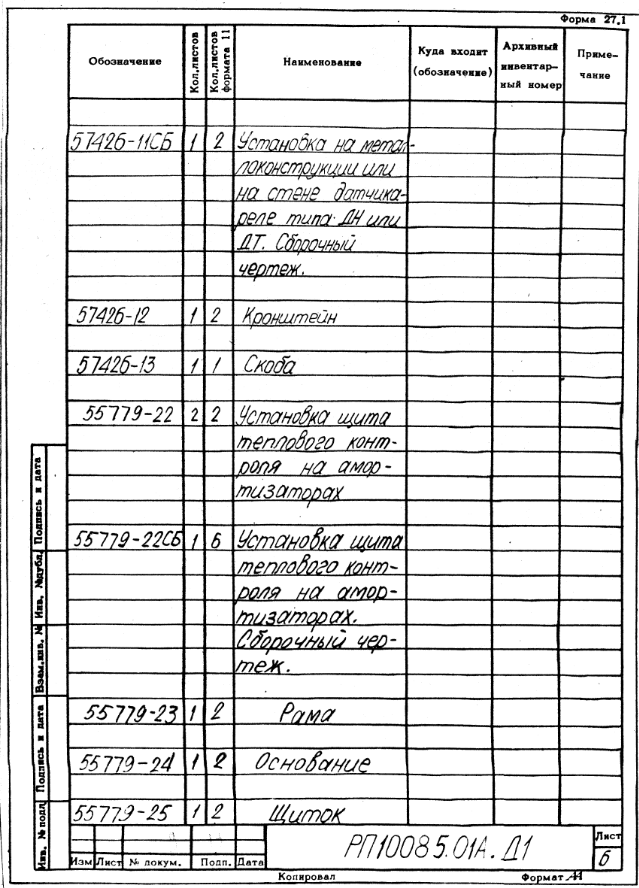 Форма 27.1
Обозначение Кол.листов Кол.листов формата 11 Наименование Куда входит (обозначение) Архивный инвентар-ный номер Приме-чание
57426-11СБ 1 2 Установка на метал-
локонструкции или
на стене датчика-
реле типа ДН или
ДТ. Сборочный
чертеж.
57426-12 1 2 Кронштейн
57426-13 1 1 Скоба
55779-22 2 2 Установка щита
теплового конт-
роля на амор-
тизаторах
55779-22СБ 1 6 Установка щита
теплового конт-
роля на амор-
тизаторах.
Сборочный чер-
теж.
55779-23 1 2 Рама
55779-24 1 2 Основание
55779-25 1 2 Щиток
Инв. № подл Подпись и дата Взам.инв. № Инв. №дубл. Подпись и дата
Изм Лист № докум. Подп. Дата
РП10085.01А.Д1
Лист
6
Копировал Формат 11